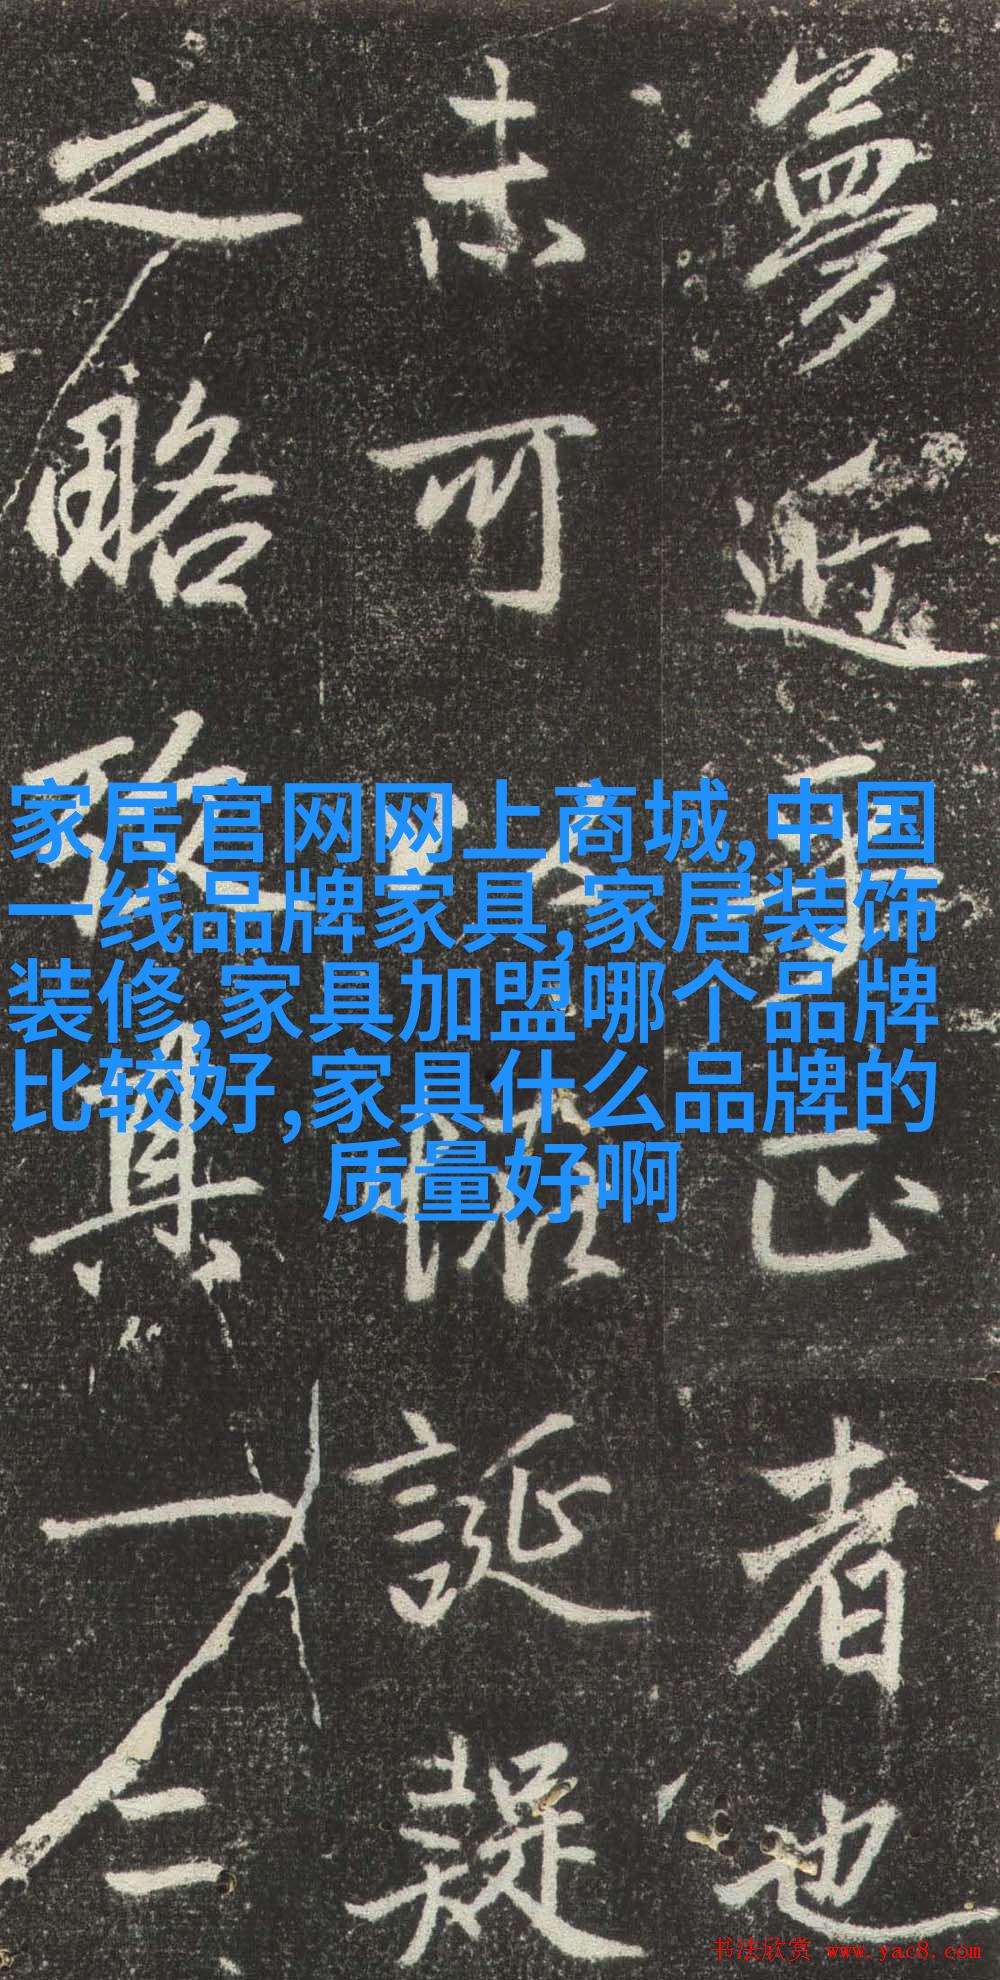 夢近正者也
未可誕疑
之略具一二
家居官网网上商城,中国
一线品牌家具,家居装饰
装修,家具加盟哪个品牌
比较好,家具什么品牌的
质量好啊
书法欣赏 www.yac8.com